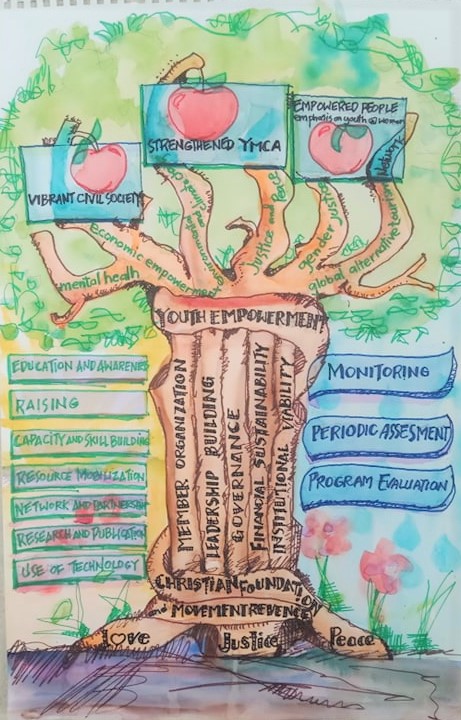 EMPOWERED PEOPLE
emphatis on youth & women
STRENGTHENED YMCA
VIBRANT CIVIL SOCIETY
mental healh
economic empowerment
Justice and Peace
gender justice
global alternative tourism
YOUTH EMPOWERMENT
EDUCATION AND AWARENES
RAISING
CAPACITY AND SKILL BUILDING
RESOURCE MOBILIZATION
NETWORK AND PARTNERSHIP
RESEARCH AND PUBLICATION
USE OF TECHNOLOGY
MEMBER ORGANIZATION
LEADERSHIP BUILDING
GOVERNANCE
FINANCIAL SUSTAINABILITY
INSTITUTIONAL VIABILITY
MONITORING
PERIODIC ASSESMENT
PROGRAM EVALUATION
CHRISTIAN FOUNDATION
and MOVEMENT REVENCE
Love
Justice
Peace